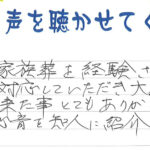 声を聴かせてく
家族葬を経験さ
対応していただき大
来た事とてもありが
音を知人に紹介